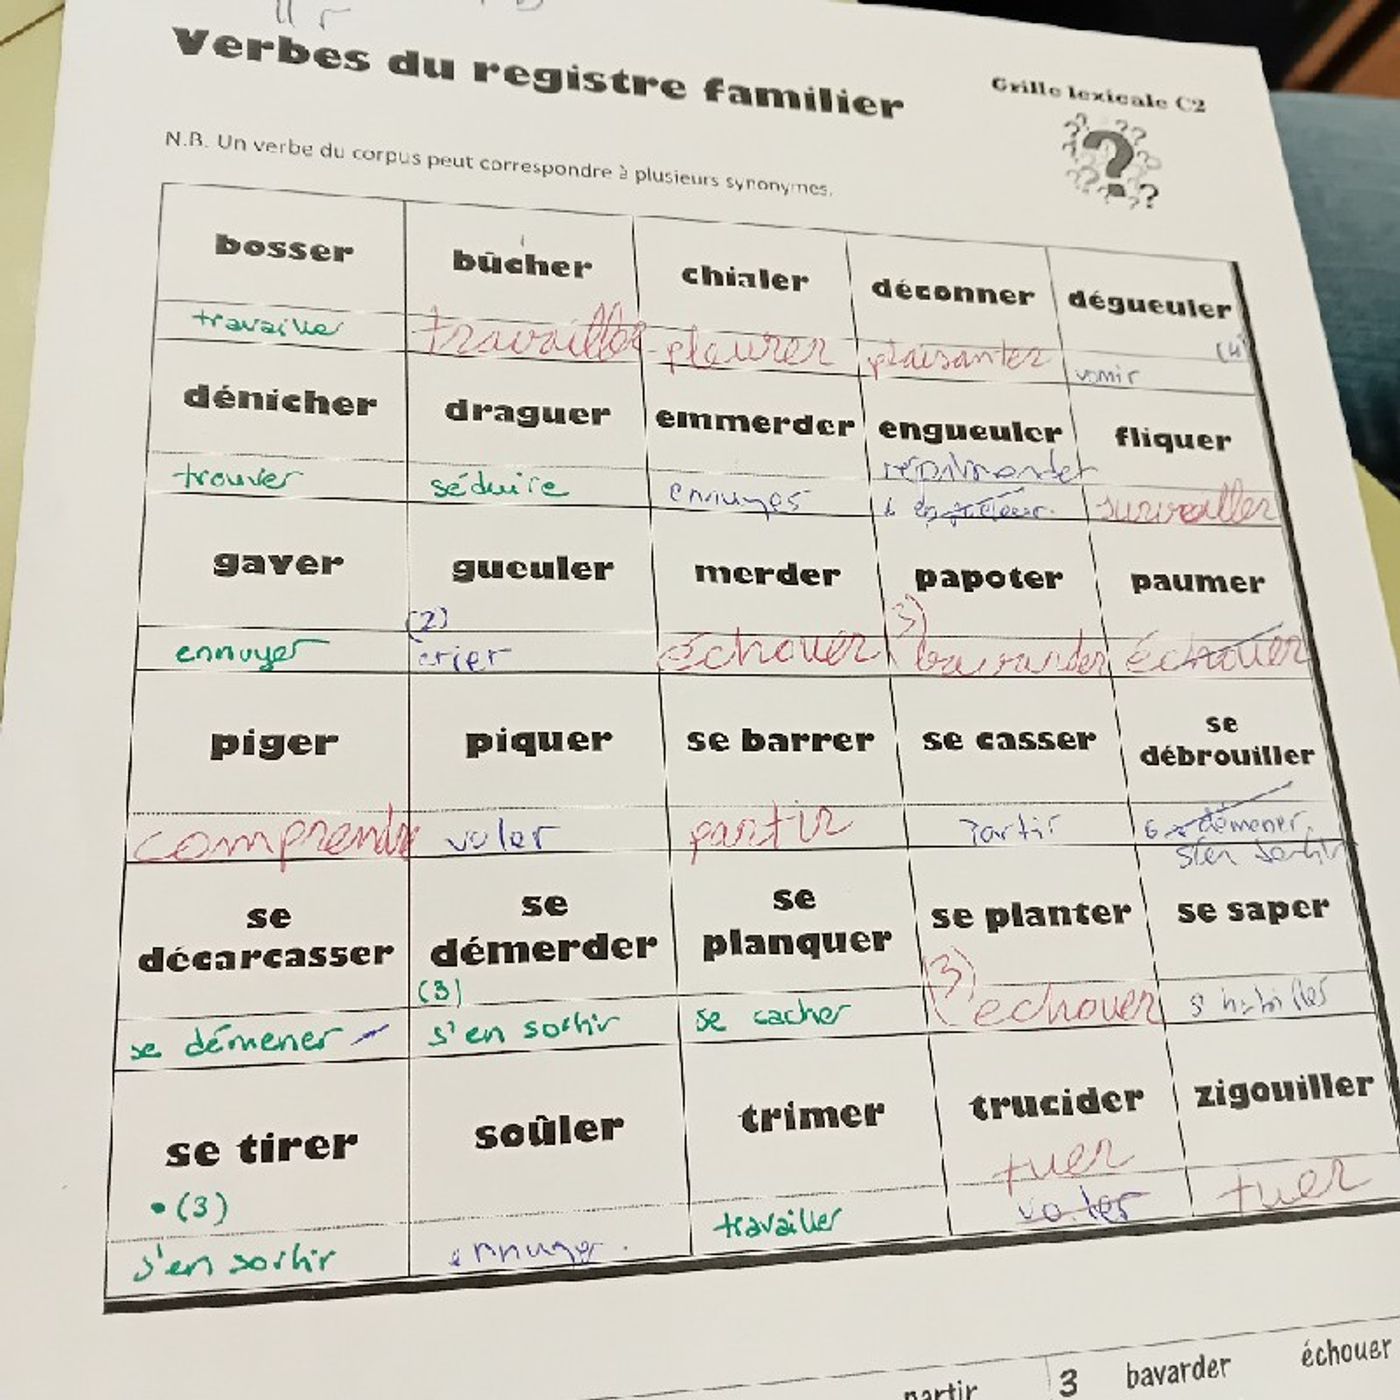 Verbes du registre familier
Grille lexicale C2
N.B. Un verbe du corpus peut correspondre à plusieurs synonymes.
bosser bûcher chialer déconner dégueuler
travailler travailler pleurer plaisanter vomir (4)
dénicher draguer emmerder engueuler fliquer
trouver séduire ennuyer réprimander surveiller
gaver gueuler merder papoter paumer
(2) 3)
ennuyer crier échouer bavarder échouer
piger piquer se barrer se casser se débrouiller
comprendre voler partir partir se démener
s'en sortir
se décarcasser se démerder se planquer se planter se saper
(3) (3)
se démener s'en sortir se cacher echouer s'habiller
se tirer soûler trimer trucider zigouiller
• (3) tuer
s'en sortir ennuyer. travailler voler tuer
partir 3 bavarder échouer